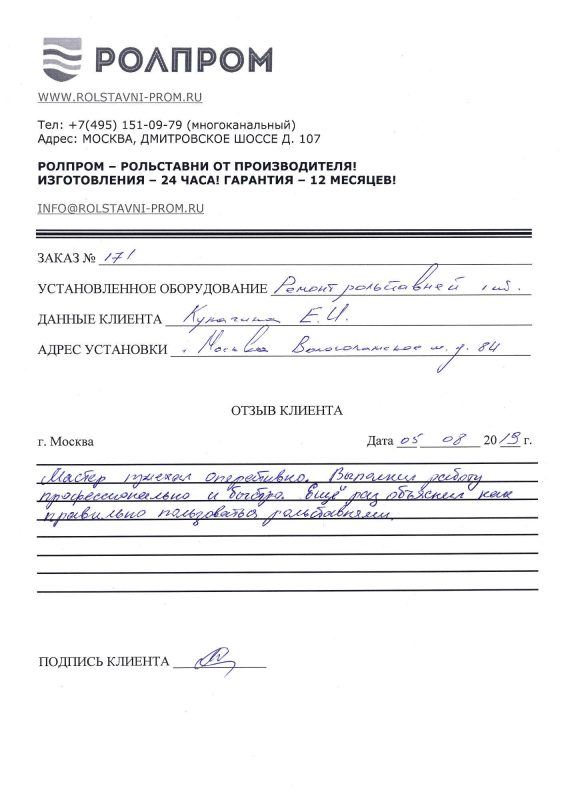 РОЛПРОМ
WWW.ROLSTAVNI-PROM.RU
Тел: +7(495) 151-09-79 (многоканальный)
Адрес: МОСКВА, ДМИТРОВСКОЕ ШОССЕ Д. 107
РОЛПРОМ – РОЛЬСТАВНИ ОТ ПРОИЗВОДИТЕЛЯ!
ИЗГОТОВЛЕНИЯ – 24 ЧАСА! ГАРАНТИЯ – 12 МЕСЯЦЕВ!
INFO@ROLSTAVNI-PROM.RU
ЗАКАЗ № 171
УСТАНОВЛЕННОЕ ОБОРУДОВАНИЕ Ремонт рольставней 1 шт.
ДАННЫЕ КЛИЕНТА Е.И.
АДРЕС УСТАНОВКИ г. Москва Волоколамское ш. д. 84
ОТЗЫВ КЛИЕНТА
г. Москва Дата 05 08 2019 г.
Мастер приехал оперативно. Выполнил работу
профессионально и быстро. Ещё раз объяснил как
правильно пользоваться рольставнями.
ПОДПИСЬ КЛИЕНТА